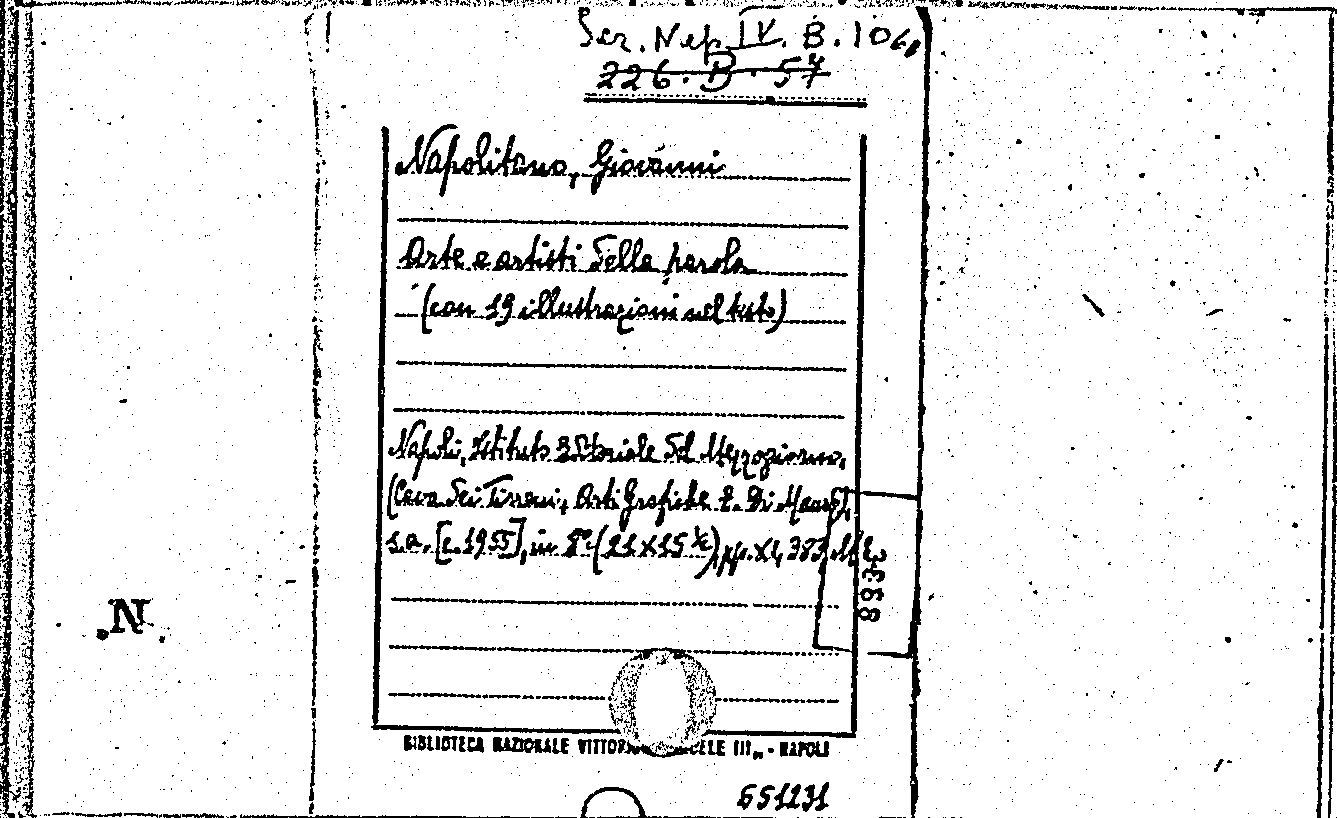 Ser. Nap. IV. B. 106
226. B. 57
Napolitano, Giovanni
Arte e artisti della parola
(con 19 illustrazioni nel testo)
Napoli, Istituto Editoriale del Mezzogiorno,
(Cava dei Tirreni, Arti Grafiche E. Di Mauro),
s.a. [c. 1955], in 8º (21 x 15 ½), pp. XL, 383
8933
N.
BIBLIOTECA NAZIONALE VITTORIO III„ - NAPOLI
651231